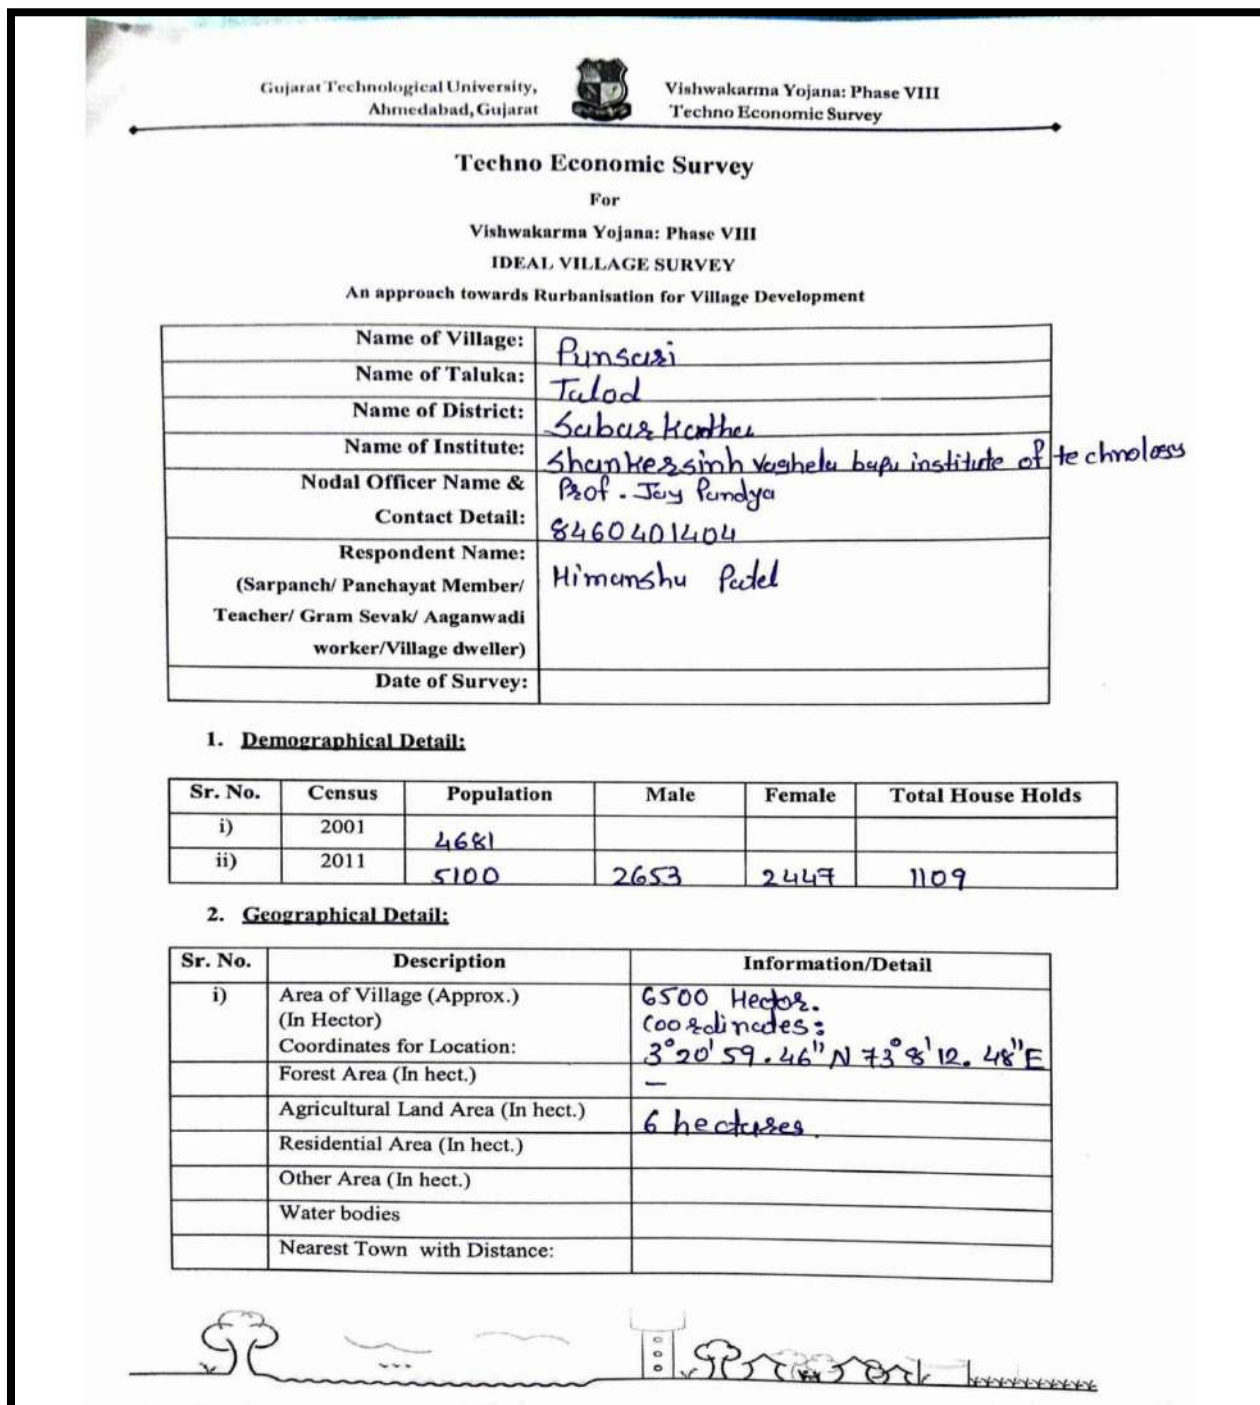 Gujarat Technological University,
Ahmedabad, Gujarat
Vishwakarma Yojana: Phase VIII
Techno Economic Survey
Techno Economic Survey
For
Vishwakarma Yojana: Phase VIII
IDEAL VILLAGE SURVEY
An approach towards Rurbanisation for Village Development
Name of Village: Punsari
Name of Taluka: Talod
Name of District: Sabarkantha
Name of Institute: Shankersinh Vaghela bapu institute of technology
Nodal Officer Name & Prof. Jay Pandya
Contact Detail: 8460401404
Respondent Name: Himanshu Patel
(Sarpanch/ Panchayat Member/
Teacher/ Gram Sevak/ Aaganwadi
worker/Village dweller)
Date of Survey:
1. Demographical Detail:
Sr. No. Census Population Male Female Total House Holds
i) 2001 4681
ii) 2011 5100 2653 2447 1109
2. Geographical Detail:
Sr. No. Description Information/Detail
i) Area of Village (Approx.) 6500 Hector.
(In Hector) Coordinates:
Coordinates for Location: 3°20'59.46"N 73°8'12.48"E
Forest Area (In hect.) –
Agricultural Land Area (In hect.) 6 hectares.
Residential Area (In hect.)
Other Area (In hect.)
Water bodies
Nearest Town with Distance: